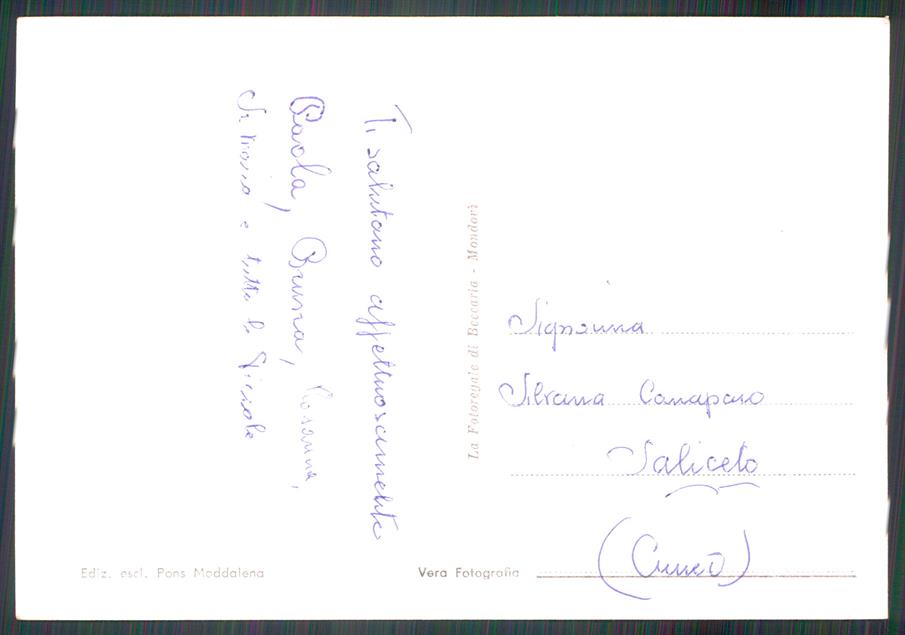 Ti salutano affettuosamente
Paola, Bruna, Rosanna,
e tutte le
La Fotoregale di Beccaria - Mondovì
Signorina
Silvana Canaparo
Saliceto
(Cuneo)
Ediz. escl. Pons Maddalena
Vera Fotografia